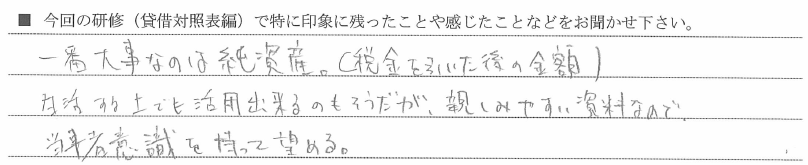 ■ 今回の研修（貸借対照表編）で特に印象に残ったことや感じたことなどをお聞かせ下さい。
一番大事なのは純資産。（税金を引いた後の金額）
生活する上でも活用出来るのもそうだが、親しみやすい資料なので
当事者意識を持って望める。